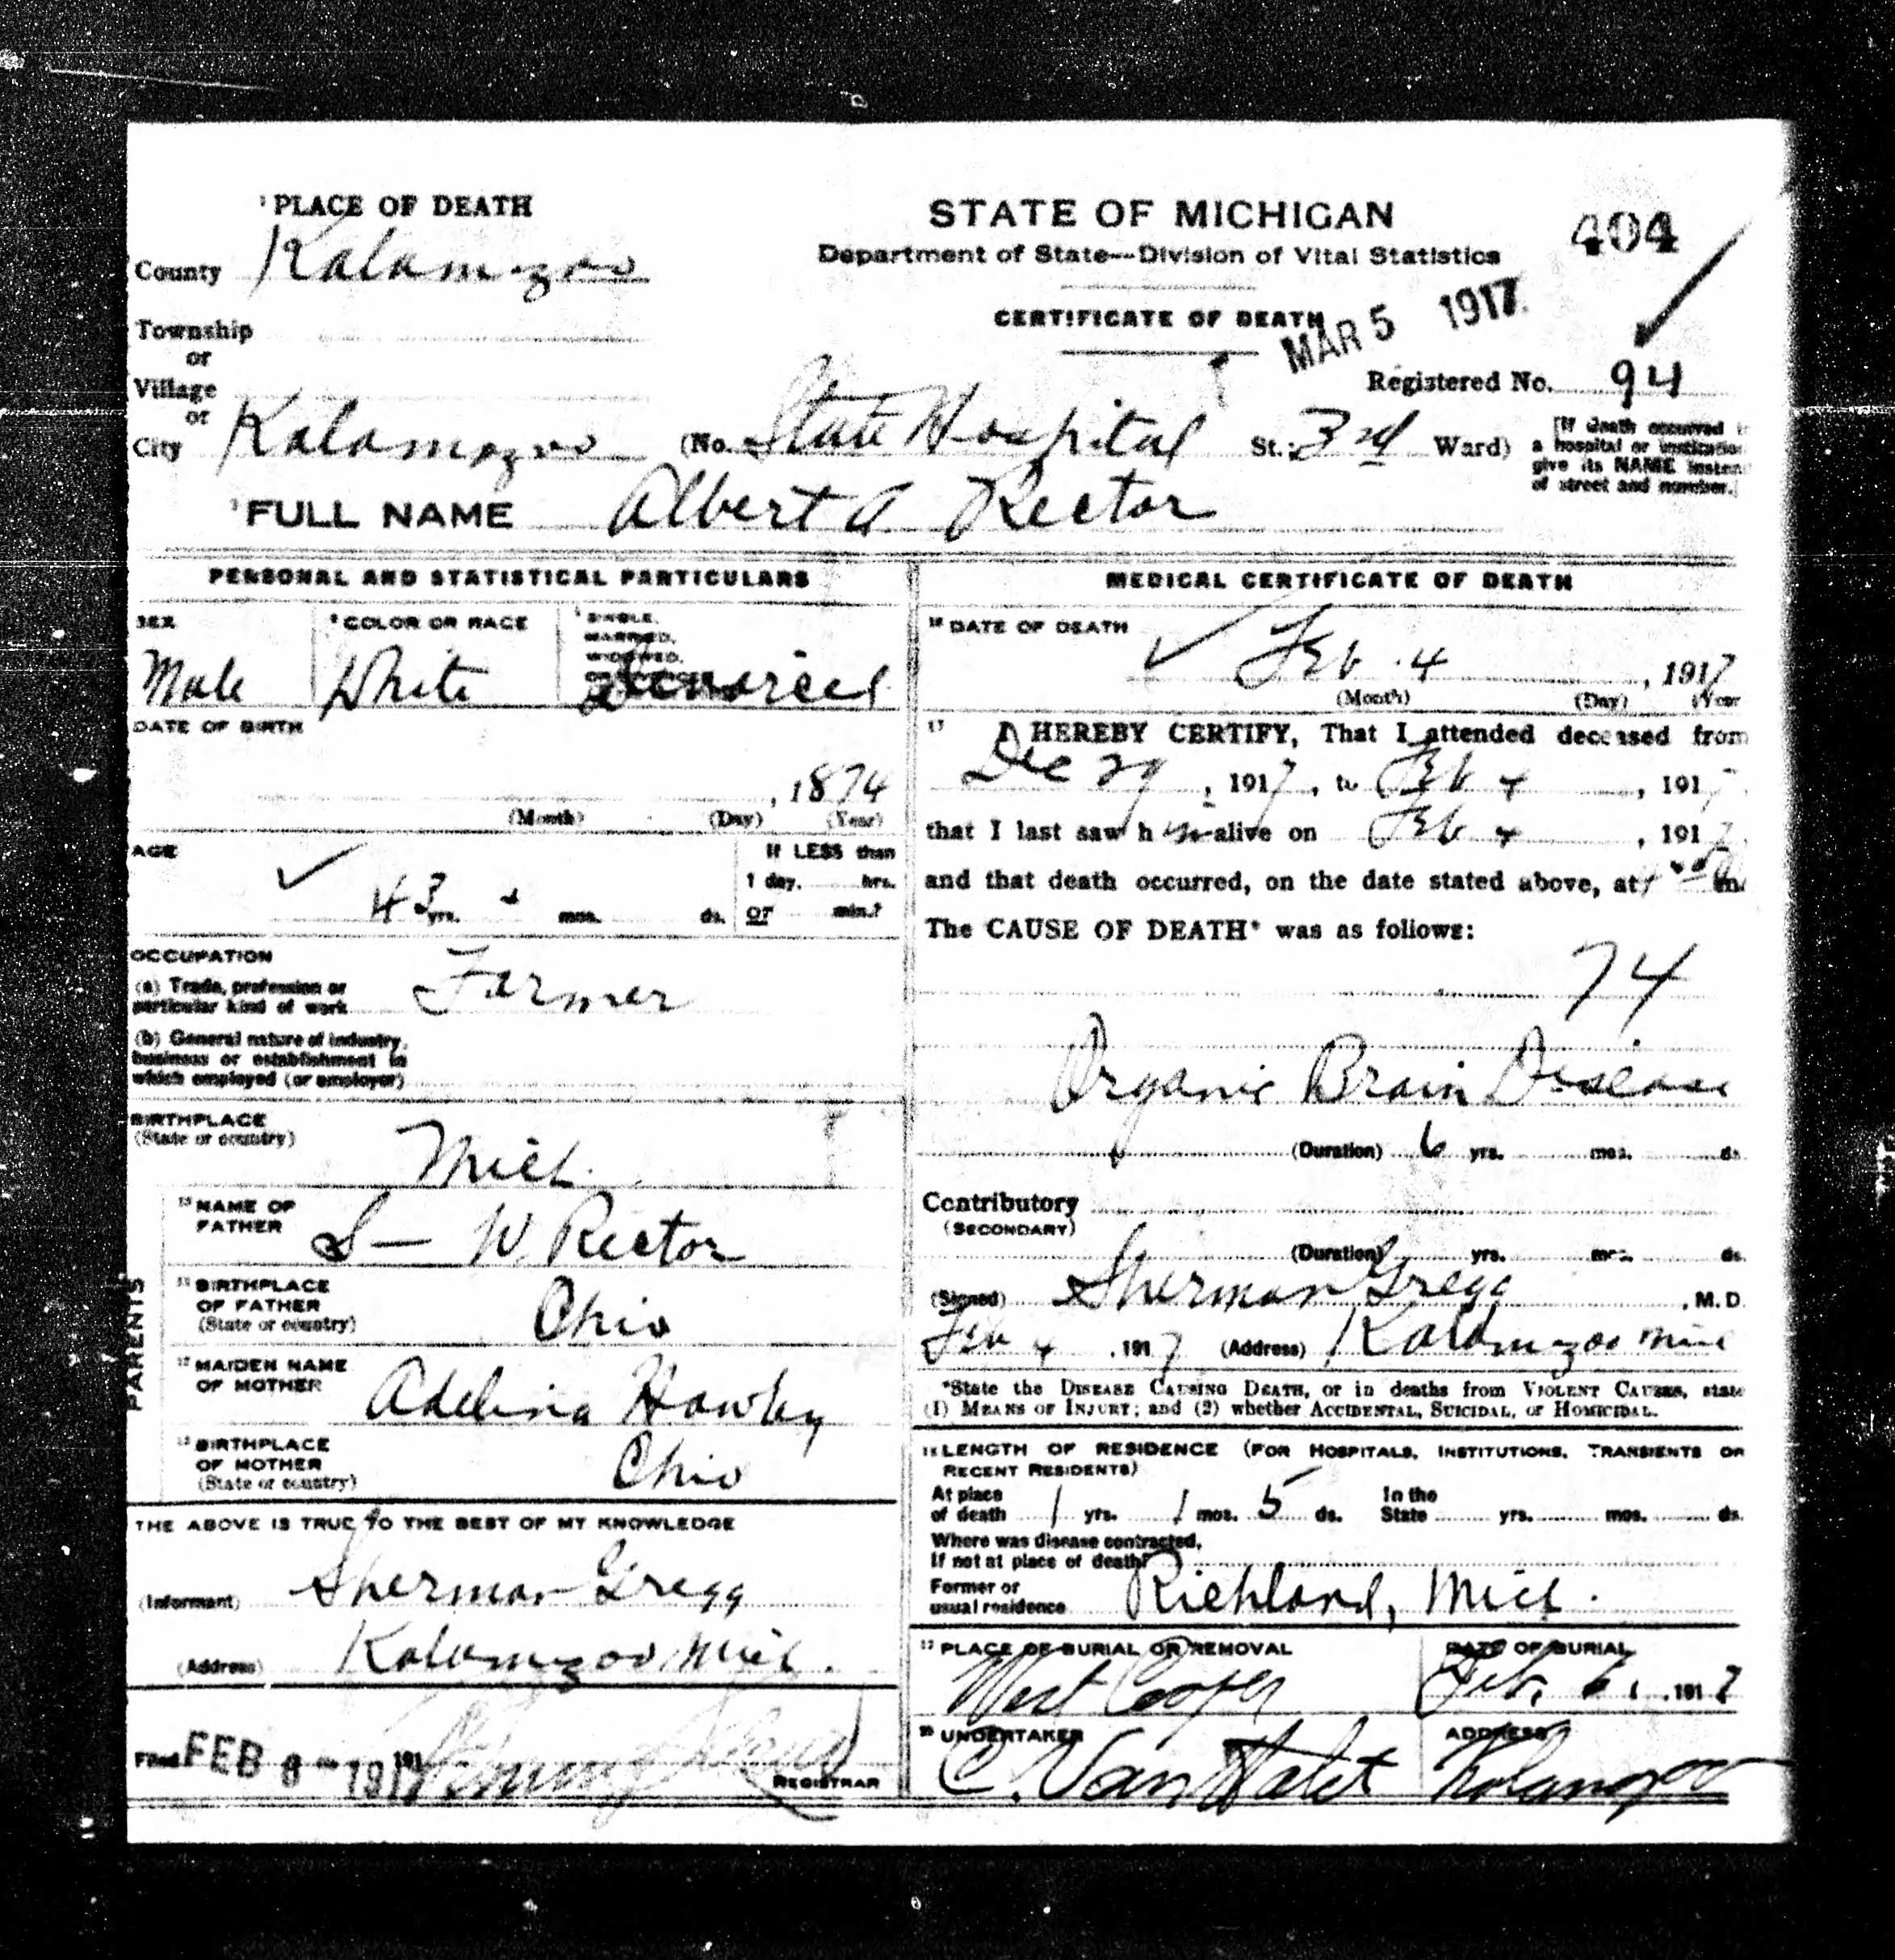 PLACE OF DEATH
STATE OF MICHIGAN
404
Department of State--Division of Vital Statistics
County Kalamazoo
CERTIFICATE OF DEATH
MAR 5 1917
Township
or
Village
or
Registered No. 94
City Kalamazoo (No. State Hospital St.; 3rd Ward)
[If death occurred i
a hospital or institution
give its NAME instea
of street and number.]
FULL NAME Albert A Rector
PERSONAL AND STATISTICAL PARTICULARS
SEX
Male
COLOR OR RACE
White
SINGLE,
MARRIED,
WIDOWED,
Divorced
DATE OF BIRTH
, 1874
(Month) (Day) (Year)
AGE
43 yrs. mos. ds.
If LESS than
1 day, hrs.
or min.?
OCCUPATION
(a) Trade, profession or
particular kind of work Farmer
(b) General nature of industry,
business or establishment in
which employed (or employer)
BIRTHPLACE
(State or country)
Mich.
PARENTS
10 NAME OF
FATHER S— W. Rector
11 BIRTHPLACE
OF FATHER
(State or country) Ohio
12 MAIDEN NAME
OF MOTHER Adelina Hawley
13 BIRTHPLACE
OF MOTHER
(State or country) Ohio
THE ABOVE IS TRUE TO THE BEST OF MY KNOWLEDGE
(Informant) Sherman Gregg
(Address) Kalamazoo Mich.
Filed FEB 8 - 1917
REGISTRAR
MEDICAL CERTIFICATE OF DEATH
16 DATE OF DEATH
Feb. 4, 1917
(Month) (Day) (Year
17 I HEREBY CERTIFY, That I attended deceased from
Dec 29, 1917, to Feb 4, 1917
that I last saw him alive on Feb 4, 1917
and that death occurred, on the date stated above, at m.
The CAUSE OF DEATH* was as follows:
74
Organic Brain Disease
(Duration) 6 yrs. mos. ds.
Contributory
(SECONDARY)
(Duration) yrs. mos. ds.
(Signed) Sherman Gregg, M.D.
Feb 4, 1917 (Address) Kalamazoo Mich
*State the DISEASE CAUSING DEATH, or in deaths from VIOLENT CAUSES, state
(1) MEANS OF INJURY; and (2) whether ACCIDENTAL, SUICIDAL, or HOMICIDAL.
18 LENGTH OF RESIDENCE (FOR HOSPITALS, INSTITUTIONS, TRANSIENTS OR
RECENT RESIDENTS)
At place
of death 1 yrs. 1 mos. 5 ds.
In the
State yrs. mos. ds.
Where was disease contracted,
If not at place of death?
Former or
usual residence Richland, Mich.
19 PLACE OF BURIAL OR REMOVAL
West Cooper
DATE OF BURIAL
Feb. 6, 1917
20 UNDERTAKER
C. Van
ADDRESS
Kalamazoo